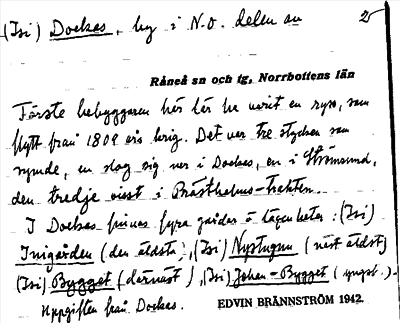 (Isi) Dockas, by i N.O. delen av 2
Råneå sn och tg, Norrbottens län
Förste bebyggaren här lär ha varit en ryss, som
flytt från 1809 års krig. Det var tre stycken som
rymde, en slog sig ner i Dockas, en i Strömsund,
den tredje visst i Prästholms-trakten.
I Dockas finnas fyra gårdar å lägenheter: (Isi)
Inigården (den äldsta), (Isi) Nystugun (näst äldst)
(Isi) Bygget (därnäst), (Isi) Johan-Bygget (yngst.).
Uppgiften från Dockas.
EDVIN BRÄNNSTRÖM 1942.